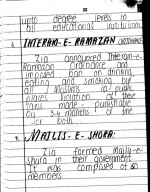 23
upto degree levels in
all educational institutions
8. INTERAM-E-RAMAZAN ORDINANCE
Zia announced Interam-e-
Ramazan Ordinance and
imposed ban on drinking,
eating and smoking by
all Muslims in public
places. Violation of these
laws made punishable
by 3-6 months of
or both.
9. MAJLIS-E-SHORA:
Zia formed Majlis-e-
Shura in their government.
It was composed of 50
members.